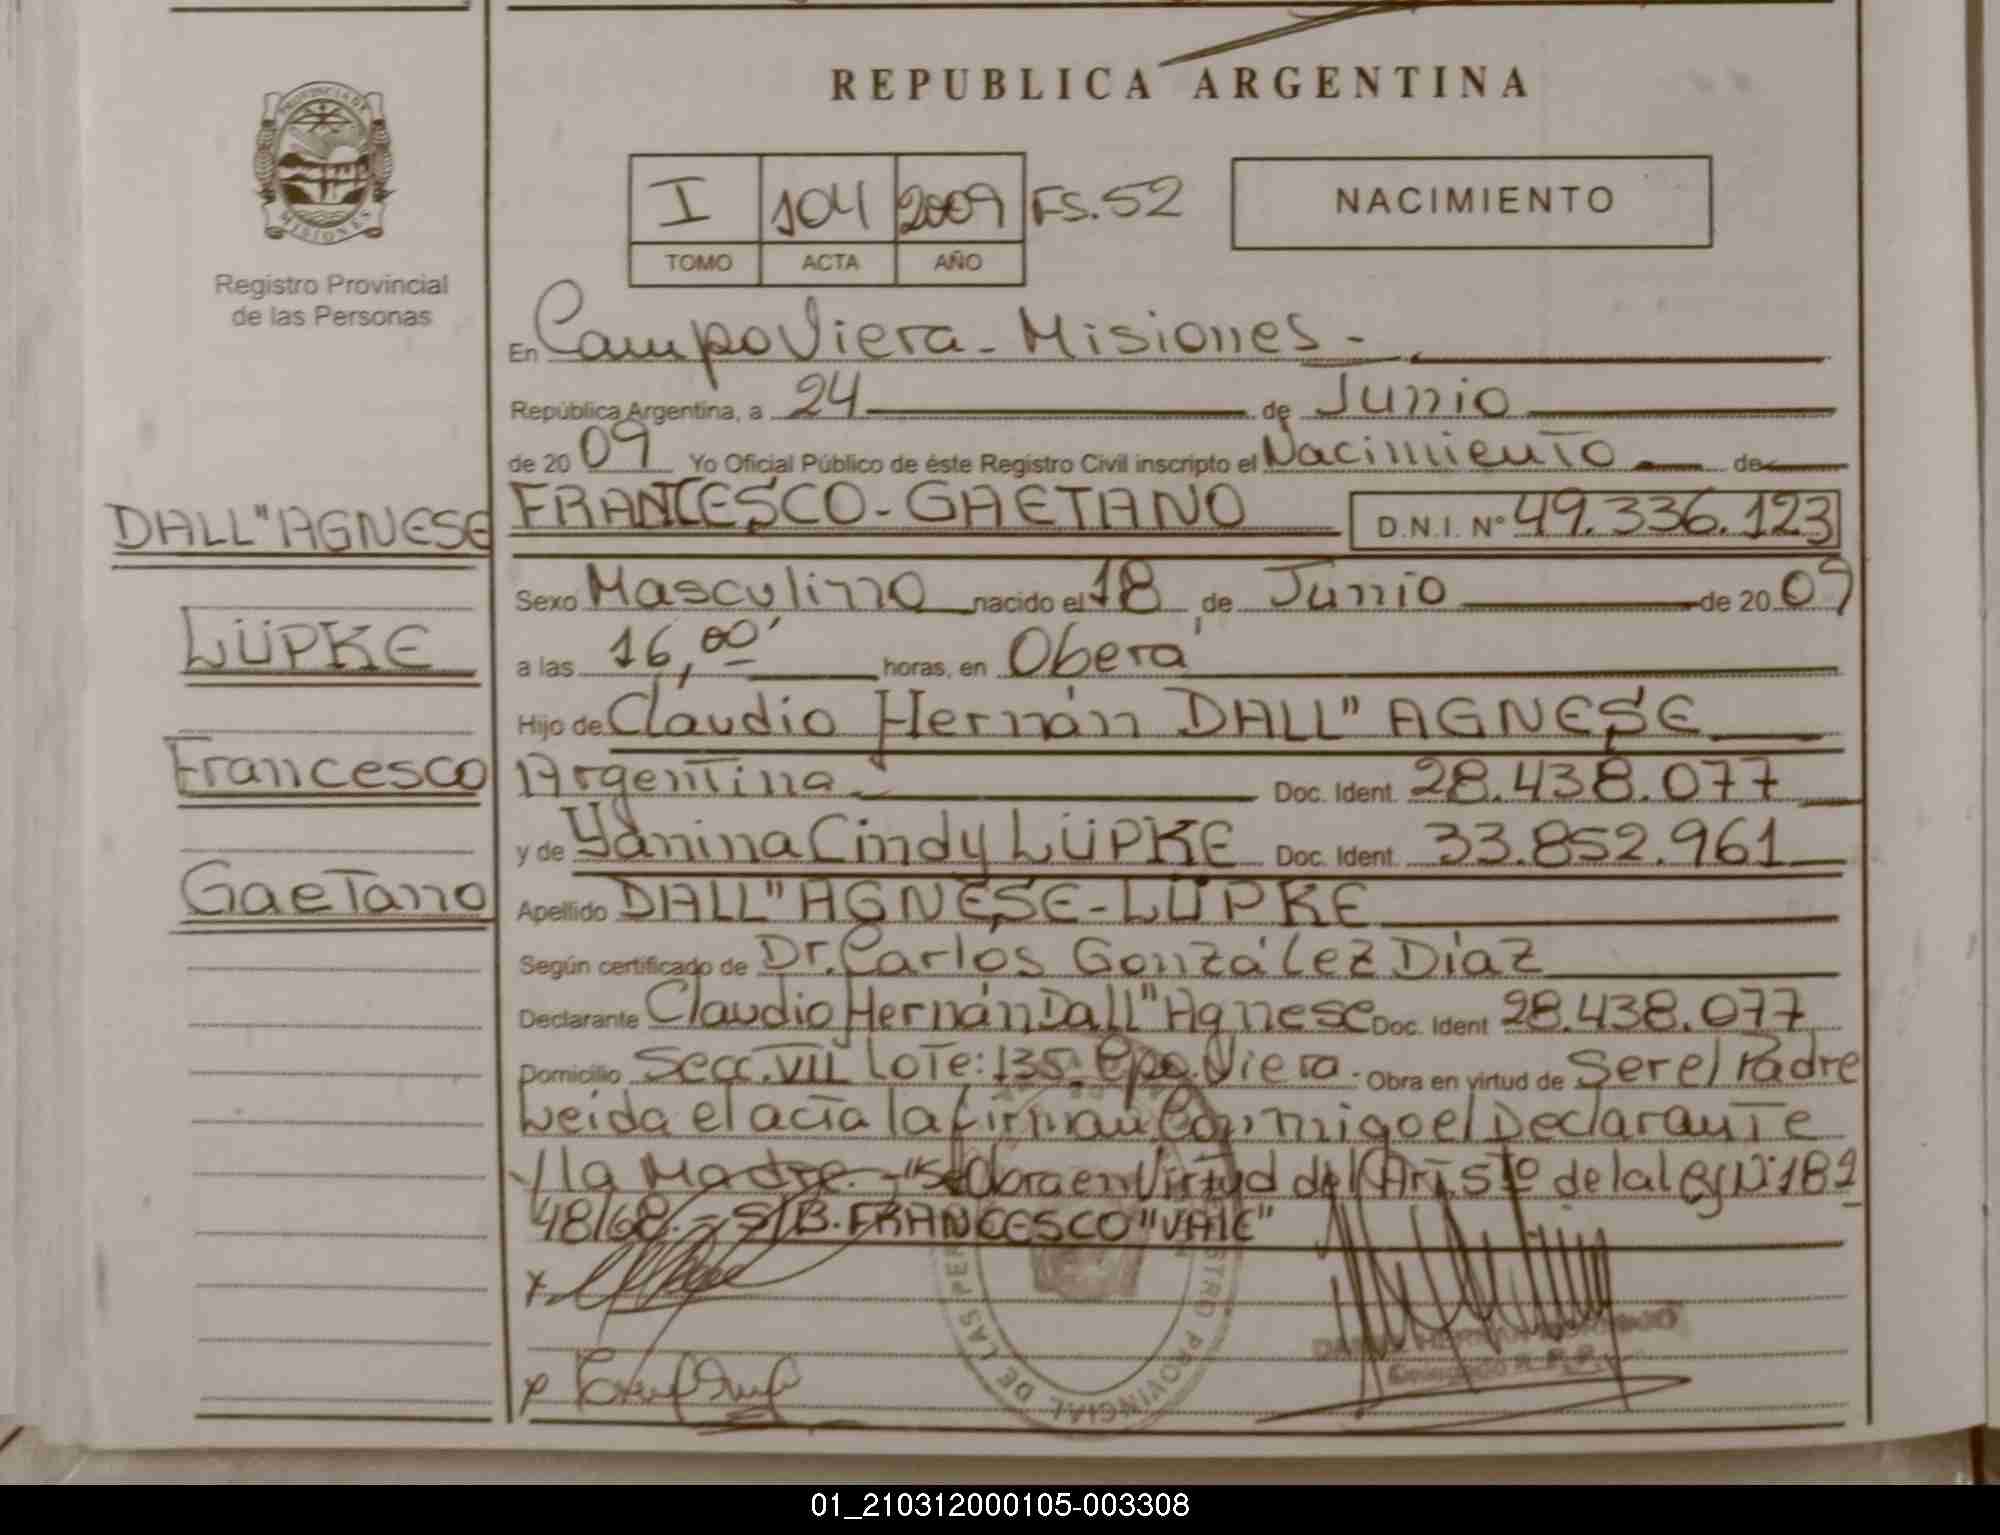 REPUBLICA ARGENTINA
PROVINCIA DE
MISIONES
Registro Provincial
de las Personas
I 104 2009 FS.52
TOMO ACTA AÑO
NACIMIENTO
En Campo Viera - Misiones -
República Argentina, a 24 de Junio
de 2009 Yo Oficial Público de éste Registro Civil inscripto el Nacimiento de
DALL"AGNESE
FRANCESCO - GAETANO D.N.I. Nº 49.336.123
Sexo Masculino nacido el 18 de Junio de 2009
LÜPKE
a las 16,00' horas, en Oberá
Hijo de Claudio Hernán DALL" AGNESE
Francesco
Argentina Doc. Ident. 28.438.077
y de Yanina Cindy LÜPKE Doc. Ident. 33.852.961
Gaetano
Apellido DALL"AGNESE-LÜPKE
Según certificado de Dr. Carlos González Díaz
Declarante Claudio Hernán Dall"Agnese Doc. Ident 28.438.077
Domicilio Secc. VII Lote: 135. Cpo. Viera. Obra en virtud de Ser el Padre
Leida el acta la firman Conmigo el Declarante
y la Madre.- "Se Obra en Virtud del Art. 5to de la Ley Nº 182
48/68.- S/B. FRANCESCO "VALE"
REGISTRO PROVINCIAL DE LAS PER
01_210312000105-003308